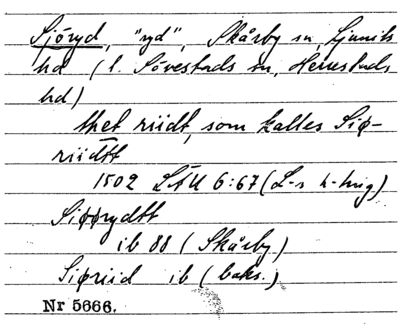 Sjöryd, "ryd", Skårby sn, Ljunits
hd (t. Sövestads sn, Herrestads
hd)
thet riidt, som kalles Siø-
riidtt
1502 LÄU 6:67 (L-s h-ting.)
Siøørydtt
ib 88 (Skårby.)
Siøriid ib (baks.)
Nr 5666.